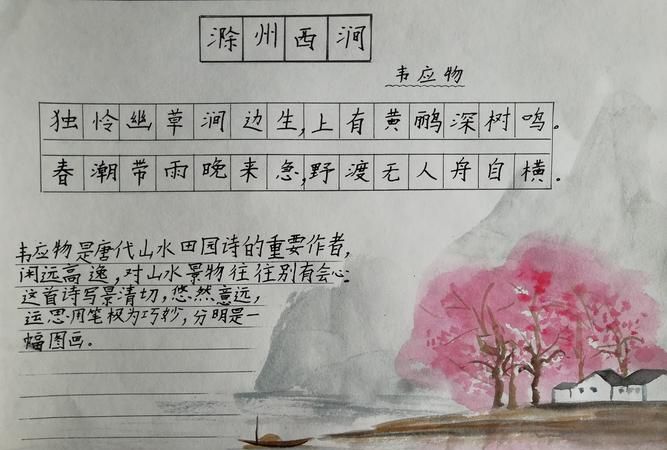 滁州西涧
韦应物
独怜幽草涧边生,上有黄鹂深树鸣。
春潮带雨晚来急,野渡无人舟自横。
韦应物是唐代山水田园诗的重要作者,
闲远高逸,对山水景物往往别有会心
这首诗写景清切,悠然意远,
运思用笔极为巧妙,分明是一
幅图画。